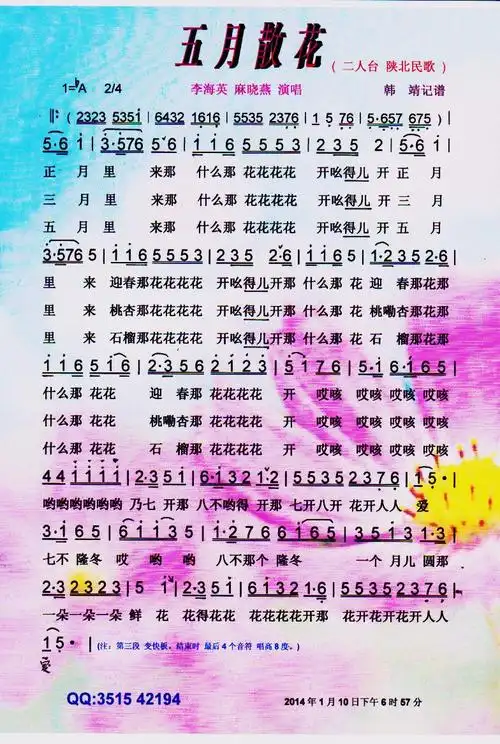 五月散花
（二人台 陕北民歌）
1=♭A 2/4
李海英 麻晓燕 演唱
韩 靖记谱
(2323 5351 | 6432 1616 | 5535 2376 | 1 5 76 | 5·657 675)
5·6 1 | 3·576 5 | 1 1 6 5553 | 2 3 5 2 | 5·6 1
正月里 来那 什么那 花花花花 开吆得儿 开 正月
三月里 来那 什么那 花花花花 开吆得儿 开 三月
五月里 来那 什么那 花花花花 开吆得儿 开 五月
3·576 5 | 1 1 6 5553 | 2 3 5 2 5 | 1 1 6 5 1 | 1·235 2·6
里 来 迎春那花花花花 开吆得儿开那 什么那 花 迎 春那花那
里 来 桃杏那花花花花 开吆得儿开那 什么那 花 桃嘞杏那花那
里 来 石榴那花花花花 开吆得儿开那 什么那 花 石 榴那花那
1 1 6 5 1 | 1·235 2321 | 5 1 7 6 | 5·6 1 6 5
什么那 花花 迎 春那 花花花花 开 哎咳 哎咳 哎咳 哎咳
什么那 花花 桃嘞杏那 花花花花 开 哎咳 哎咳 哎咳 哎咳
什么那 花花 石 榴那 花花花花 开 哎咳 哎咳 哎咳 哎咳
4 4 1 1 1 1 | 2·3 5 1 | 6·132 1·2 | 5535 2376 | 1 5·
哟哟哟哟哟哟 乃七 开那 八不哟得 开那 七开八开 花开人人 爱
3·1 6 5 | 6 1 1 3 5 | 6·1 3 5 | 2·3 2 1
七不 隆冬 哎 哟哟 哟 八不那个 隆冬 一个 月儿 圆那
2·3 2323 | 5 1
一朵一朵一朵 鲜 花 花得花花 花花花花开那 花开花开花开人人
1 5·
爱
(注：第三段 变快板。结束时 最后4个音符 唱高8度。)
QQ:3515 42194
2014年1月10日下午6时57分